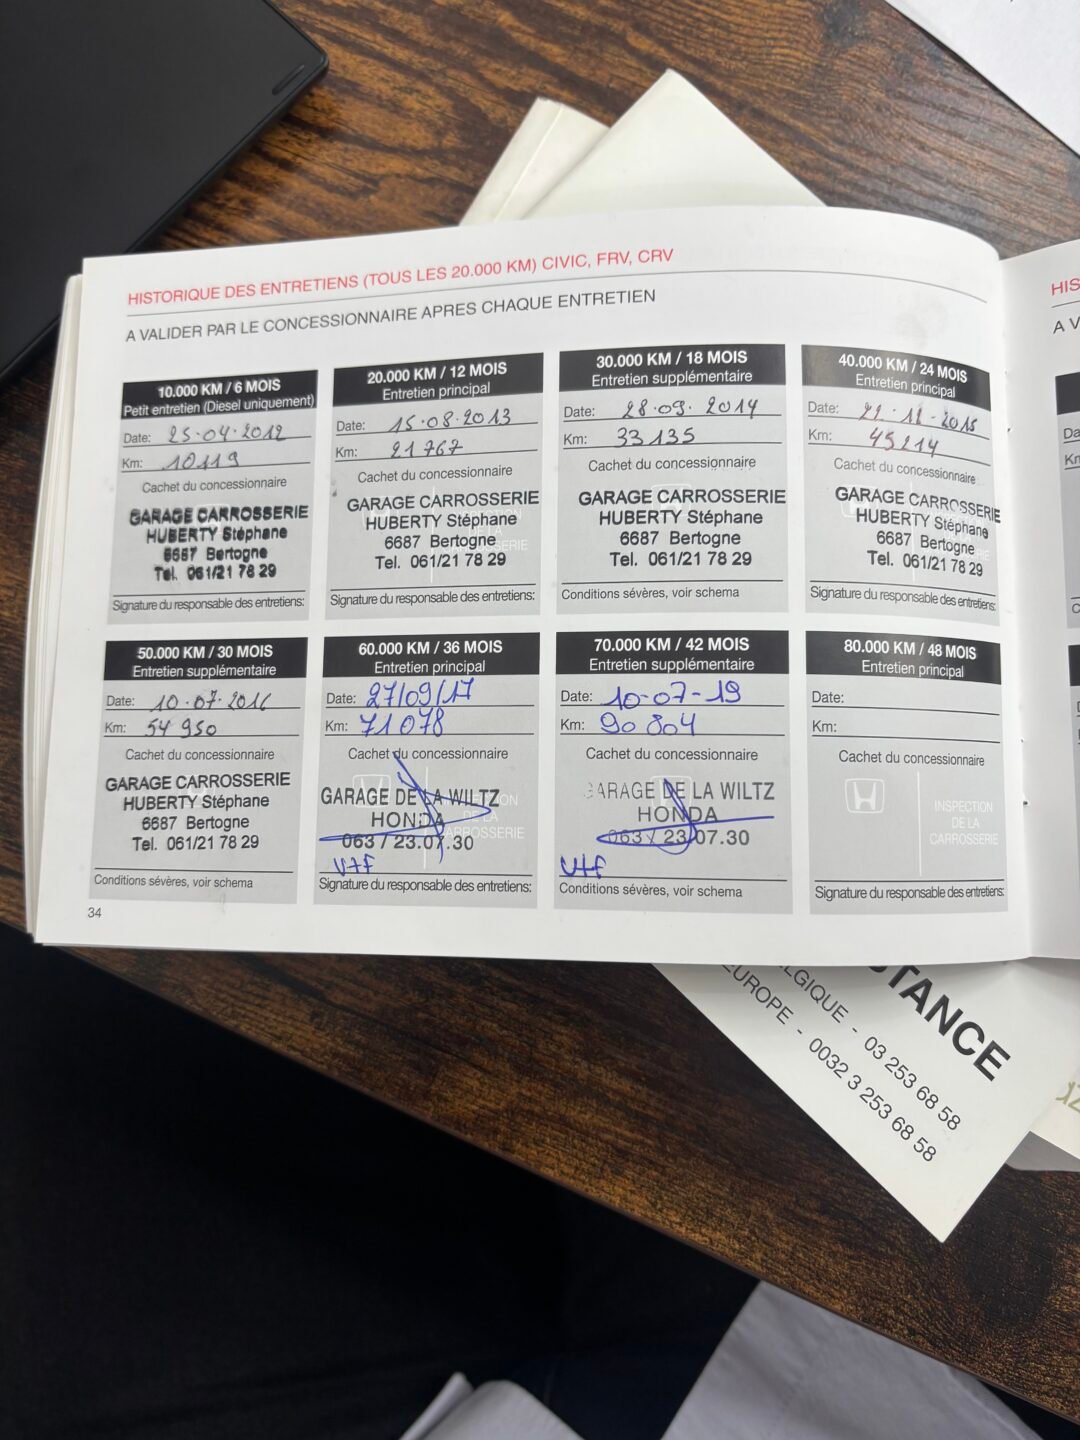 HISTORIQUE DES ENTRETIENS (TOUS LES 20.000 KM) CIVIC, FRV, CRV
A VALIDER PAR LE CONCESSIONNAIRE APRES CHAQUE ENTRETIEN
10.000 KM / 6 MOIS
Petit entretien (Diesel uniquement)
Date: 25.04.2012
Km: 10119
Cachet du concessionnaire
GARAGE CARROSSERIE
HUBERTY Stéphane
6687 Bertogne
Tel. 061/21 78 29
Signature du responsable des entretiens:
20.000 KM / 12 MOIS
Entretien principal
Date: 15.08.2013
Km: 21767
Cachet du concessionnaire
GARAGE CARROSSERIE
HUBERTY Stéphane
6687 Bertogne
Tel. 061/21 78 29
Signature du responsable des entretiens:
30.000 KM / 18 MOIS
Entretien supplémentaire
Date: 28.09.2014
Km: 33135
Cachet du concessionnaire
GARAGE CARROSSERIE
HUBERTY Stéphane
6687 Bertogne
Tel. 061/21 78 29
Conditions sévères, voir schema
40.000 KM / 24 MOIS
Entretien principal
Date:
Km: 45214
Cachet du concessionnaire
GARAGE CARROSSERIE
HUBERTY Stéphane
6687 Bertogne
Tel. 061/21 78 29
Signature du responsable des entretiens:
50.000 KM / 30 MOIS
Entretien supplémentaire
Date: 10.07.2016
Km: 54950
Cachet du concessionnaire
GARAGE CARROSSERIE
HUBERTY Stéphane
6687 Bertogne
Tel. 061/21 78 29
Conditions sévères, voir schema
60.000 KM / 36 MOIS
Entretien principal
Date: 27/09/17
Km: 71078
Cachet du concessionnaire
GARAGE DE LA WILTZ
HONDA
063 / 23.07.30
Signature du responsable des entretiens:
70.000 KM / 42 MOIS
Entretien supplémentaire
Date: 10-07-19
Km: 90804
Cachet du concessionnaire
GARAGE DE LA WILTZ
HONDA
063 / 23.07.30
Conditions sévères, voir schema
80.000 KM / 48 MOIS
Entretien principal
Date:
Km:
Cachet du concessionnaire
INSPECTION
DE LA
CARROSSERIE
Signature du responsable des entretiens:
34
HIS
A V
STANCE
LGIQUE - 03 253 68 58
EUROPE - 0032 3 253 68 58